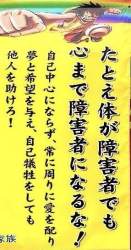 たとえ体が障害者でも
心まで障害者になるな！
自己中心にならず、常に周りに愛を配り
夢と希望を与え、自己犠牲をしても
他人を助けろ！
家族